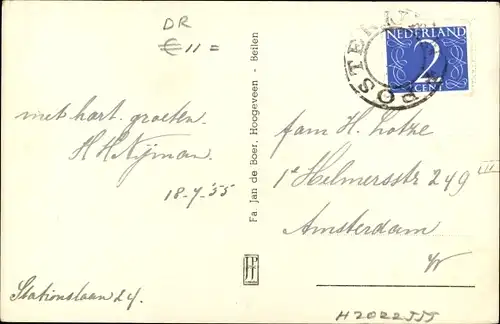 DR
€ 11 =
NEDERLAND
2
CENT
POS
met hart. groeten.
H H Nijman.
18-7-'55
Stationslaan 24.
Fa. Jan de Boer, Hoogeveen - Beilen
fam H. Lotke
1e Helmersstr 249 III
Amsterdam
W
H2022555